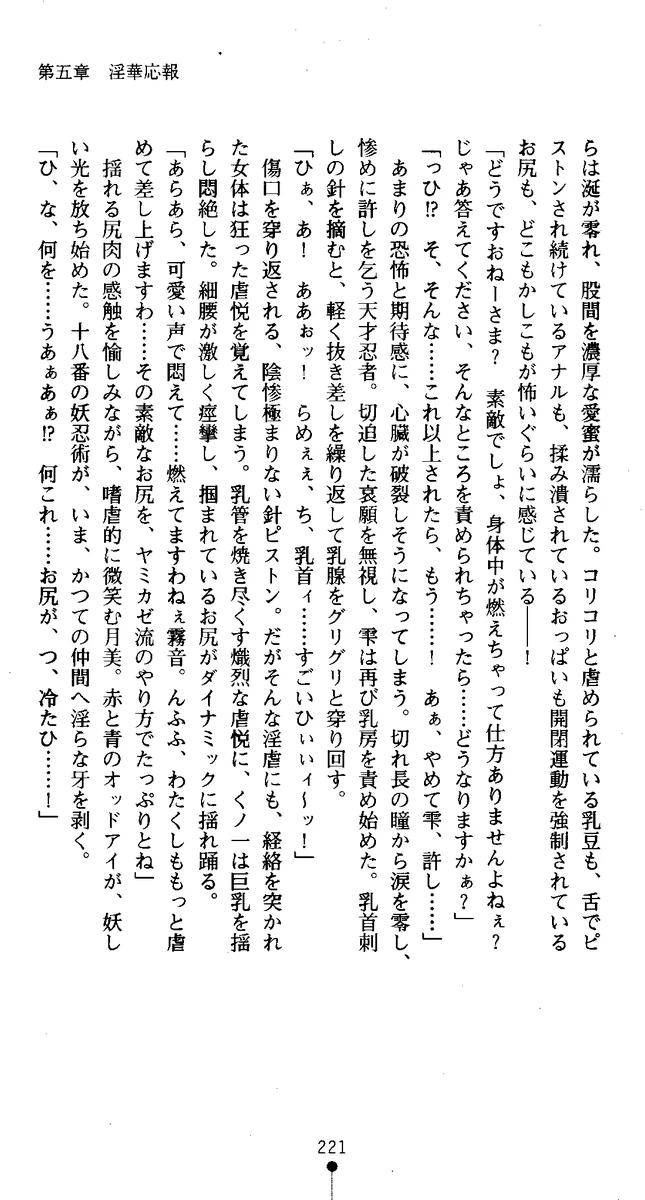 第五章　淫華応報
らは涎が零れ、股間を濃厚な愛蜜が濡らした。コリコリと虐められている乳豆も、舌でピ
ストンされ続けているアナルも、揉み潰されているおっぱいも開閉運動を強制されている
お尻も、どこもかしこもが怖いぐらいに感じている――！
「どうですおねーさま？　素敵でしょ、身体中が燃えちゃって仕方ありませんよねぇ？
じゃあ答えてください、そんなところを責められちゃったら……どうなりますかぁ？」
「っひ!?　そ、そんな……これ以上されたら、もう……！　あぁ、やめて雫、許し……」
あまりの恐怖と期待感に、心臓が破裂しそうになってしまう。切れ長の瞳から涙を零し、
惨めに許しを乞う天才忍者。切迫した哀願を無視し、雫は再び乳房を責め始めた。乳首刺
しの針を摘むと、軽く抜き差しを繰り返して乳腺をグリグリと穿り回す。
「ひぁ、あ！　ああぉッ！　らめぇぇ、ち、乳首ィ……すごいひぃぃィ～ッ！」
傷口を穿り返される、陰惨極まりない針ピストン。だがそんな淫虐にも、経絡を突かれ
た女体は狂った虐悦を覚えてしまう。乳管を焼き尽くす熾烈な虐悦に、くノ一は巨乳を揺
らし悶絶した。細腰が激しく痙攣し、掴まれているお尻がダイナミックに揺れ踊る。
「あらあら、可愛い声で悶えて……燃えてますわねぇ霧音。んふふ、わたくしももっと虐
めて差し上げますわ……その素敵なお尻を、ヤミカゼ流のやり方でたっぷりとね」
揺れる尻肉の感触を愉しみながら、嗜虐的に微笑む月美。赤と青のオッドアイが、妖し
い光を放ち始めた。十八番の妖忍術が、いま、かつての仲間へ淫らな牙を剥く。
「ひ、な、何を……うあぁあぁ!?　何これ……お尻が、つ、冷たひ……！」
221